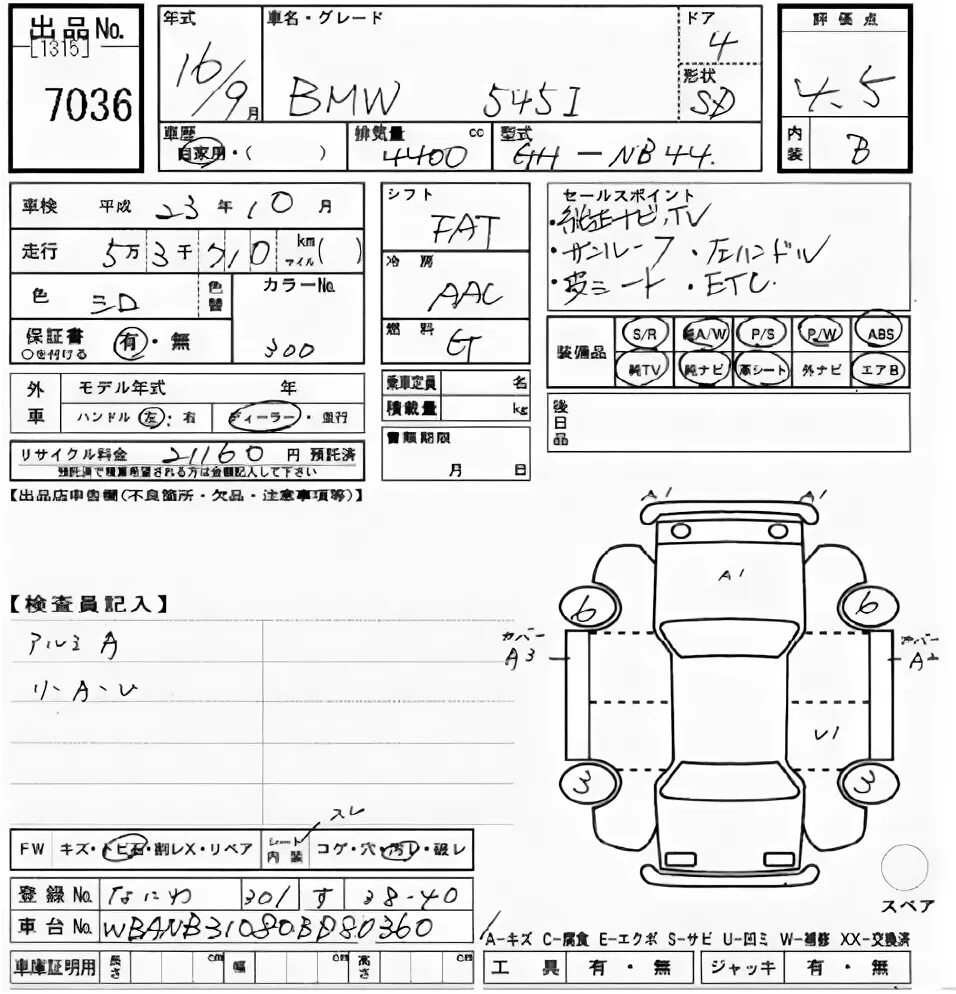 出品No.
[1315]
7036
年式
16/9月
車名・グレード
BMW 545I
ドア
4
形状
SD
車歴
自家用・( )
排気量 cc
4400
型式
GH-NB44.
評価点
4.5
内装
B
車検 平成 23年10月
走行 5万3千710 km マイル( )
色
色替
カラーNo.
300
保証書 有・無
○を付ける
外車
モデル年式 年
ハンドル 左:右 ディーラー・並行
リサイクル料金 21160円 預託済
預託済で積算希望される方は金額記入して下さい
シフト
FAT
冷房
AAC
燃料
G
乗車定員 名
積載量 kg
書類期限
月 日
セールスポイント
・純正ナビ,TV
・サンルーフ ・左ハンドル
・皮シート ・ETC.
装備品
S/R 純A/W P/S P/W ABS
純TV 純ナビ 革シート 外ナビ エアB
後日品
【出品店申告欄(不良箇所・欠品・注意事項等)】
【検査員記入】
アルミ A
リ、A、U
A1 A1
A1
6 6
カバー A3
カバー A2
U1
3 3
スペア
スレ
FW キズ・トビ石・割レX・リペア
シート内装 コゲ・穴・汚レ・破レ
登録No. なにわ 301 す 38-40
車台No. WBANB31080BD80360
車庫証明用 長さ cm 幅 cm 高さ cm
A-キズ C-腐食 E-エクボ S-サビ U-凹ミ W-補修 XX-交換済
工具 有・無 ジャッキ 有・無